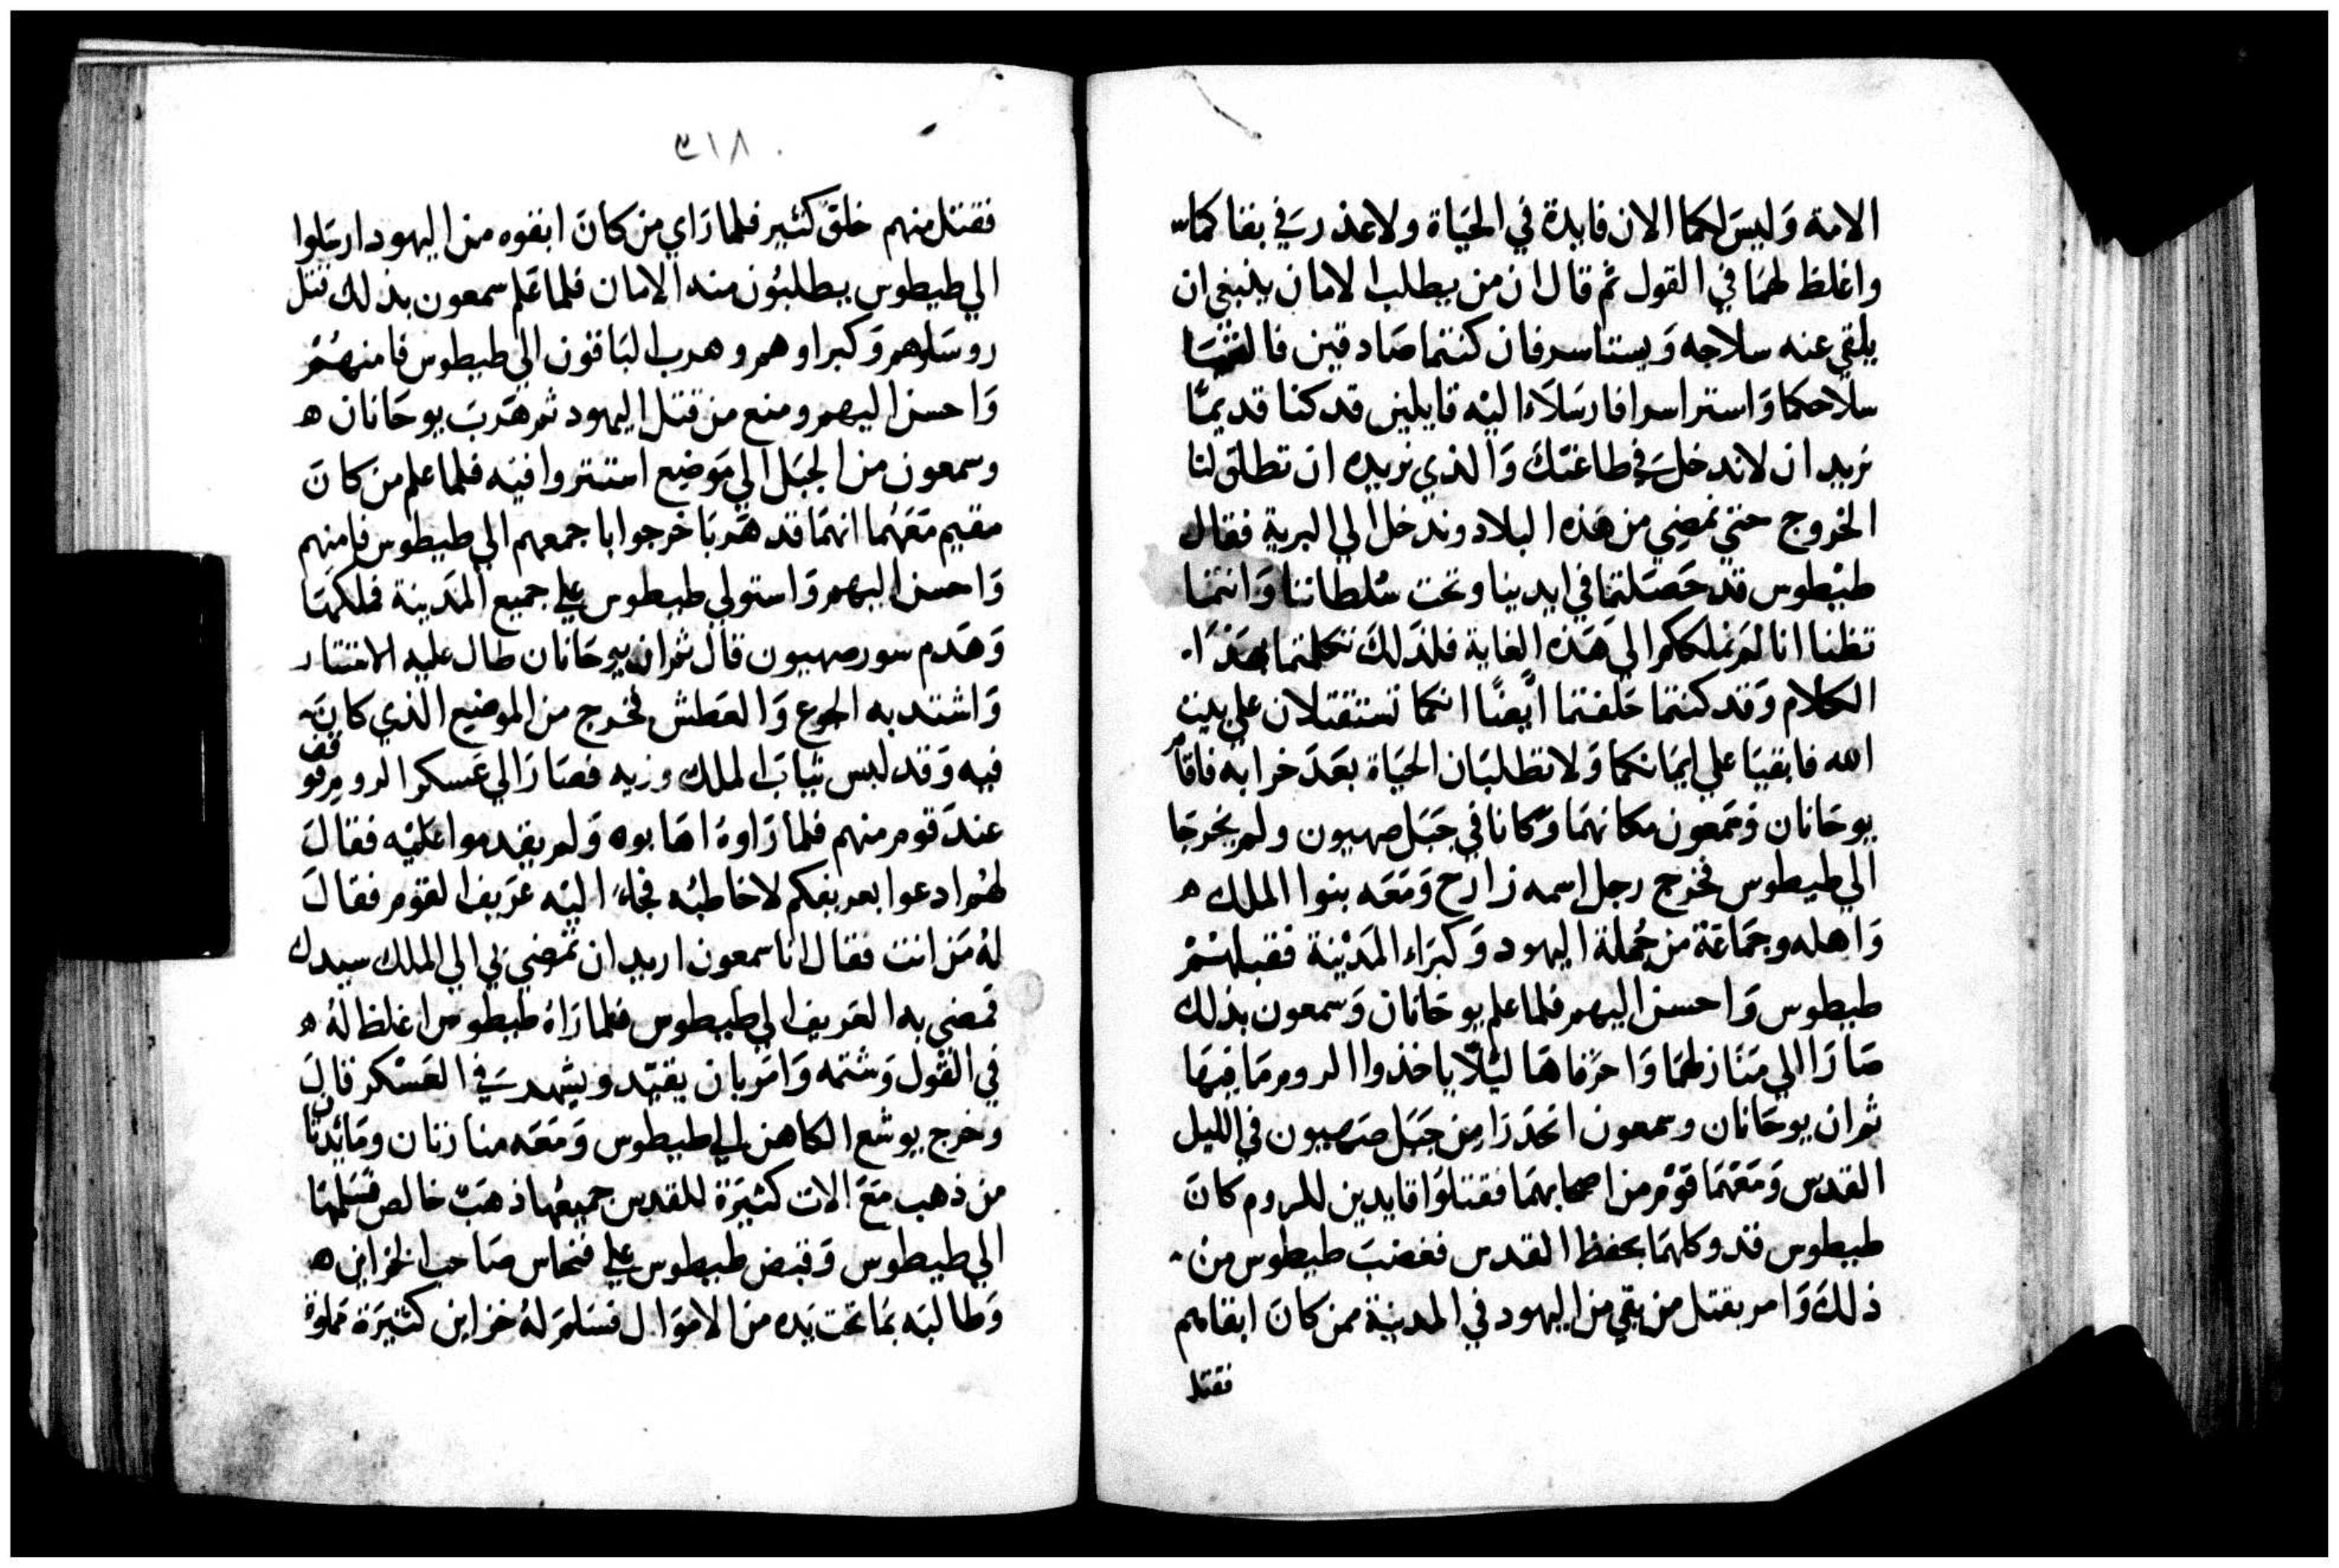 الامة وَليسَ لكما الان فايدة في الحيَاة ولا عذر في بقاكما
واغلظ لهمَا في القول ثم قال ان من يطلب الامان ينبغي ان
يلقي عنه سلاحه وَيستاسر فان كنتما صَادقين فالقيَا
سلاحكما وَاستراسرا فارسَلاَ اليْه قايلين قد كنا قديمًا
نريد ان لا ندخل في طاعتك وَالذي نريده ان تطلق لنا
الخروج حتي نمضِي من هَذه البلاد وندخل الي البرية فقال
طيْطوس قد حَصَلتما في ايدينا وتحت سُلطاننا وَانتمَا
تظنا انا لمَ نملككم الي هَذه الغاية فلذَلك تكلمتما بهَذَا
الكلام وَقد كنتما حَلفتما ايَضًا انكما تستقتلان علي بيت
الله فابقيَا علي ايمَانكما وَلا تطلبَان الحيَاة بعَدَ خرابه فاقام
يوحَانان وَسَمعون مكانهمَا وَكانا في جَبَل صهيون ولم يخرجَا
الي طيطوس فخرج رجل اسمه زارح وَمَعَه بنوا الملك ه
وَاهله وجمَاعَة من جُملة اليهود وَكبرَاء المَديْنة فقبلهُمْ
طيطوس وَاحسن اليهم فلما علم يوحَانان وَسمعون بذلك
صَارَا الي مَنَازلهمَا وَاحرَقاهَا ليَلاً ياخذوا الروم مَا فيهَا
ثم ان يوحَانان وسمعون انحَدَرَا مِن جَبَل صَهيون في الليل
القدس وَمَعَهْمَا قوَم من اصحابهمَا فقتلوَا قايدين للروم كانَ
طيطوس قد وكلهمَا بحفظ القدس فغضبَ طيطوس من
ذلكَ وَامر بقتل من بقي من اليهود في المدينة ممن كانَ ابقاهم
فقتل
٣١٨
فقتل منهم خلقَ كثير فلما رَاي من كانَ ابقوه من اليهود ارسَلوا
الي طيطوس يطلبُون منه الامان فلما عَلم سمعون بذلك قتل
روسَاهم وَكبراوهم وهرب البَاقون الي طيطوس فامنهُمْ
وَاحسن اليهم ومنع من قتل اليهود ثم هَربَ يوحَانان ه
وسمعون من الجبَل الي مَوَضيع استتروا فيَه فلما علم من كانَ
مقيم مَعَهُما انهمَا قد هَربَا خرجوا باجمعهم الي طيطوس فامنهم
وَاحسن اليهم وَاستولي طيطوس علي جميع المَدَينة فملكهَا
وَهَدم سور صهيون قال ثم ان يوحَانان طال عليه الاستتار
وَاشتد به الجوع وَالعَطش فخرج من الموضيع الذي كانَ
فيه وَقد لبس ثيابَ الملك وزيه فصَارَ الي عَسكر الروم فوقف
عندَ قوم منهم فلما رَاوهَ اهَابوه وَلم يقدموا عَليْه فقالَ
لهمُ ادعوا بعريفكم لاخاطبُه فجاءَ اليْه عَريف القوم فقالَ
لهُ مَن انت فقال انا سمعون اريد ان تمضي بي الي الملك سيدك
فمَضي به العَريف الي طيطوس فلما رَاهُ طيطوس اغلظ لهُ ه
في القول وَشتمه وَامَر بان يقيّد ويشهد في العَسْكر قالَ
وخرج يوشع الكاهن الي طيطوس وَمَعَه منارتان ومَائدتان
من ذهب مَعَ الات كثيَرَة للقدس جميعُها ذهَبَ خالص فسَلمهَا
الي طيطوس وَقبض طيطوس علي فنحاس صَاحب الخزاين ه
وَطالبَه بمَا تحت يَده من الاموَال فسَلمَ لهُ خزاين كثيَرَة مملوة